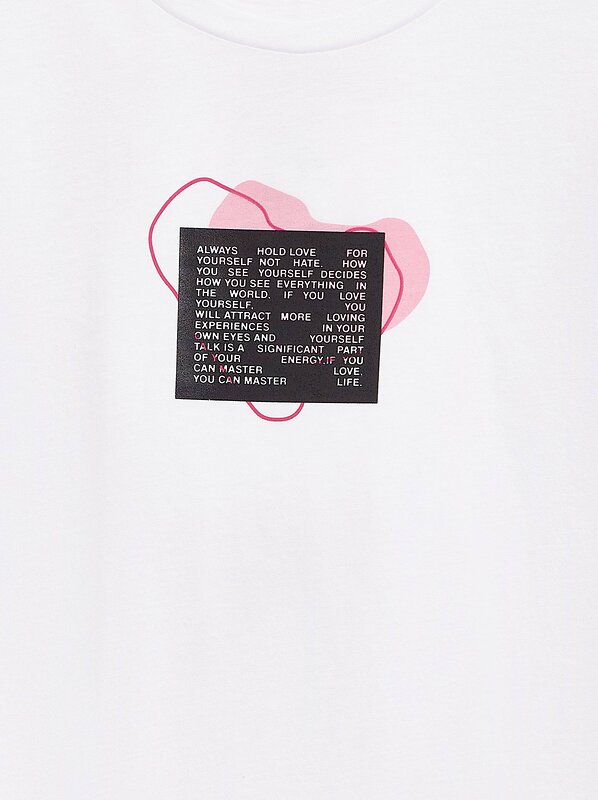 ALWAYS HOLD LOVE FOR
YOURSELF NOT HATE. HOW
YOU SEE YOURSELF DECIDES
HOW YOU SEE EVERYTHING IN
THE WORLD. IF YOU LOVE
YOURSELF. YOU
WILL ATTRACT MORE LOVING
EXPERIENCES IN YOUR
OWN EYES AND YOURSELF
TALK IS A SIGNIFICANT PART
OF YOUR ENERGY.IF YOU
CAN MASTER LOVE.
YOU CAN MASTER LIFE.